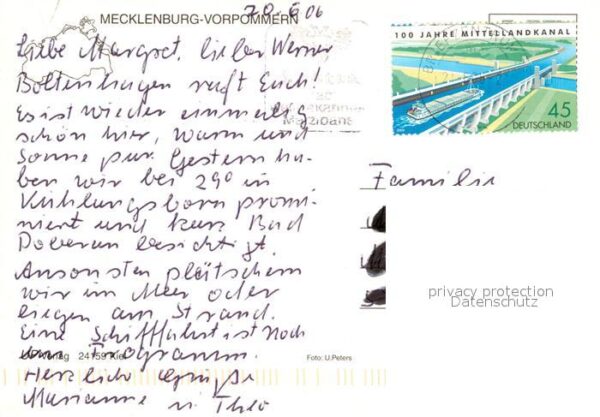 MECKLENBURG-VORPOMMERN
28.6.06
Liebe Margret, lieber Werner
Boltenhagen ruft Euch!
Es ist wieder einmalig
schön hier, warm und
Sonne pur. Gestern ha-
ben wir bei 29° in
Kühlungsborn prome-
niert und kurz Bad
Doberan besichtigt.
Ansonsten plätschern
wir im Meer oder
liegen am Strand.
Eine Schiffahrt ist noch
Programm.
Herzliche Grüße
Marianne u. Theo
Verlag 24159 Kiel
Foto: U.Peters
100 JAHRE MITTELLANDKANAL
45
DEUTSCHLAND
Familie
privacy protection
Datenschutz